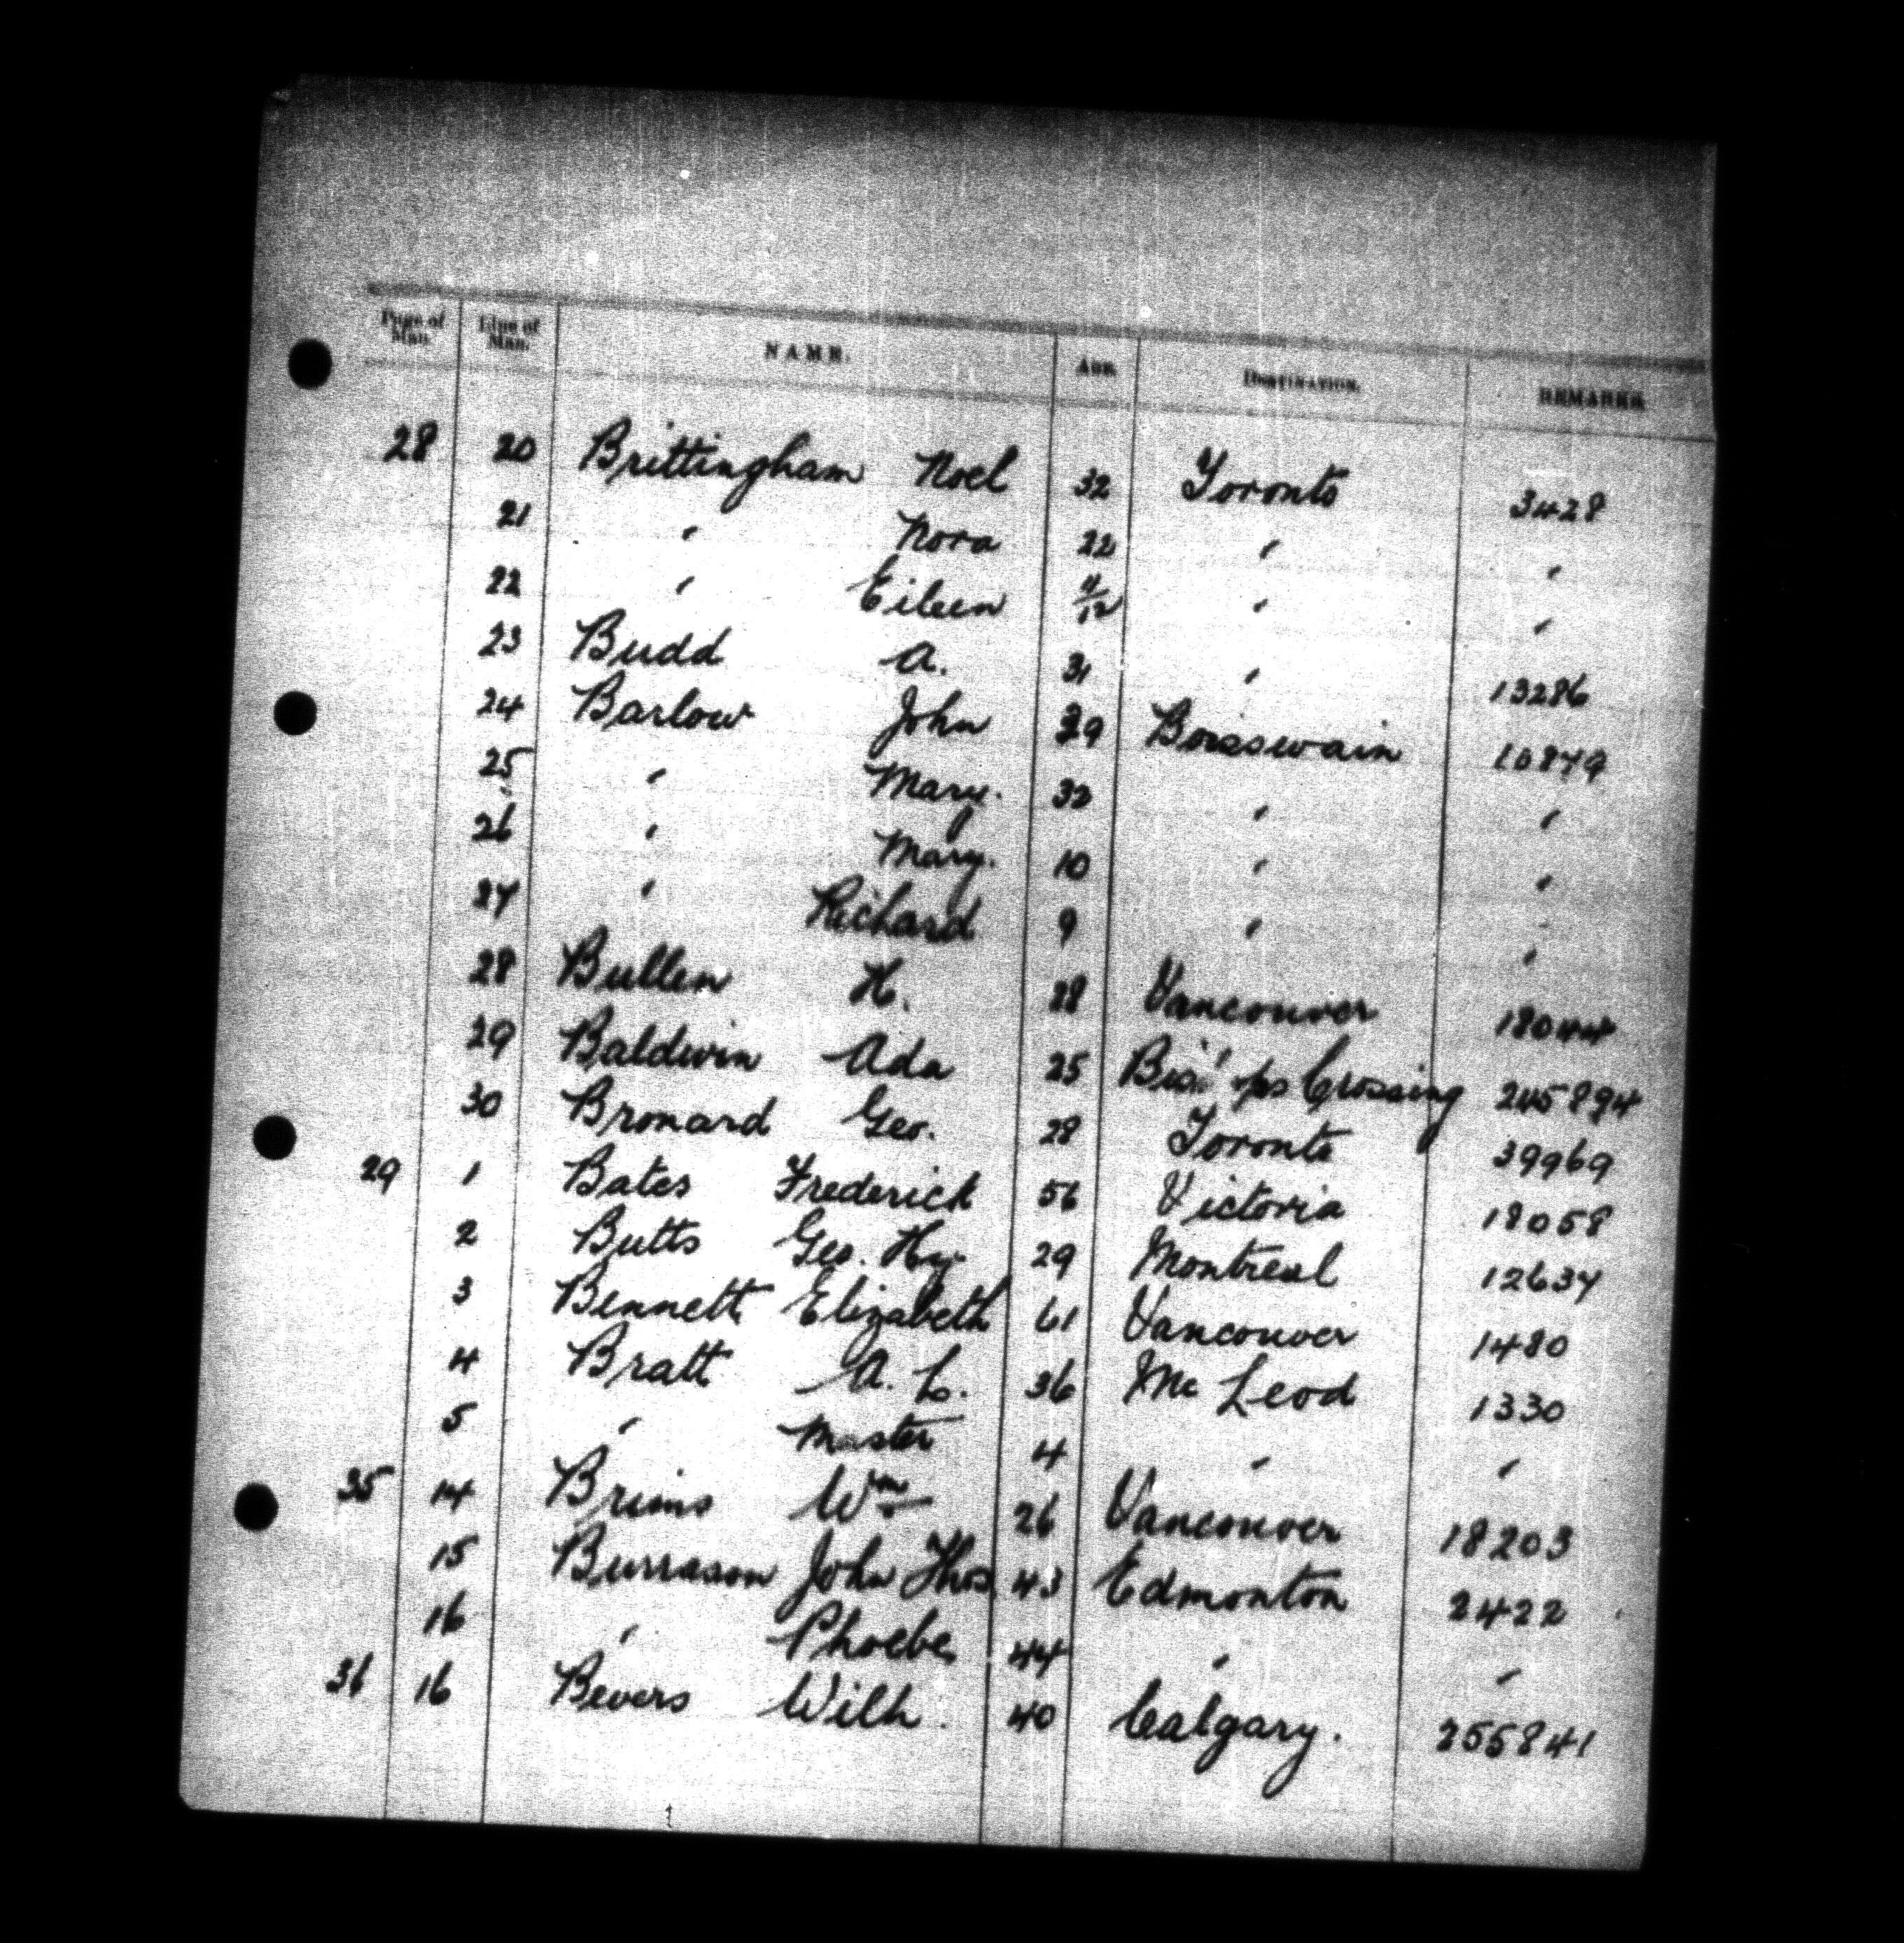 Page of Man. Line of Man. NAME. AGE. DESTINATION. REMARKS
28 20 Brittingham Noel 32 Toronto 3428
21 " Nora 22 " "
22 " Eileen 11/12 " "
23 Budd A. 31 " 13286
24 Barlow John 39 Boisswain 10879
25 " Mary. 32 " "
26 " Mary. 10 " "
27 " Richard 9 " "
28 Bullen H. 28 Vancouver 18044
29 Baldwin Ada 25 Crossing 245894
30 Bronard Geo. 28 Toronto 39969
29 1 Bates Frederick 56 Victoria 18058
2 Butts Geo. Hy. 29 Montreal 12637
3 Bennett Elizabeth 61 Vancouver 1480
4 Bratt A. L. 36 Mc Leod 1330
5 " Master 4 " "
35 14 Brims Wm 26 Vancouver 18203
15 Burrason John Thos 43 Edmonton 2422
16 " Phoebe 44 " "
36 16 Bevers Wilh. 40 Calgary. 255841